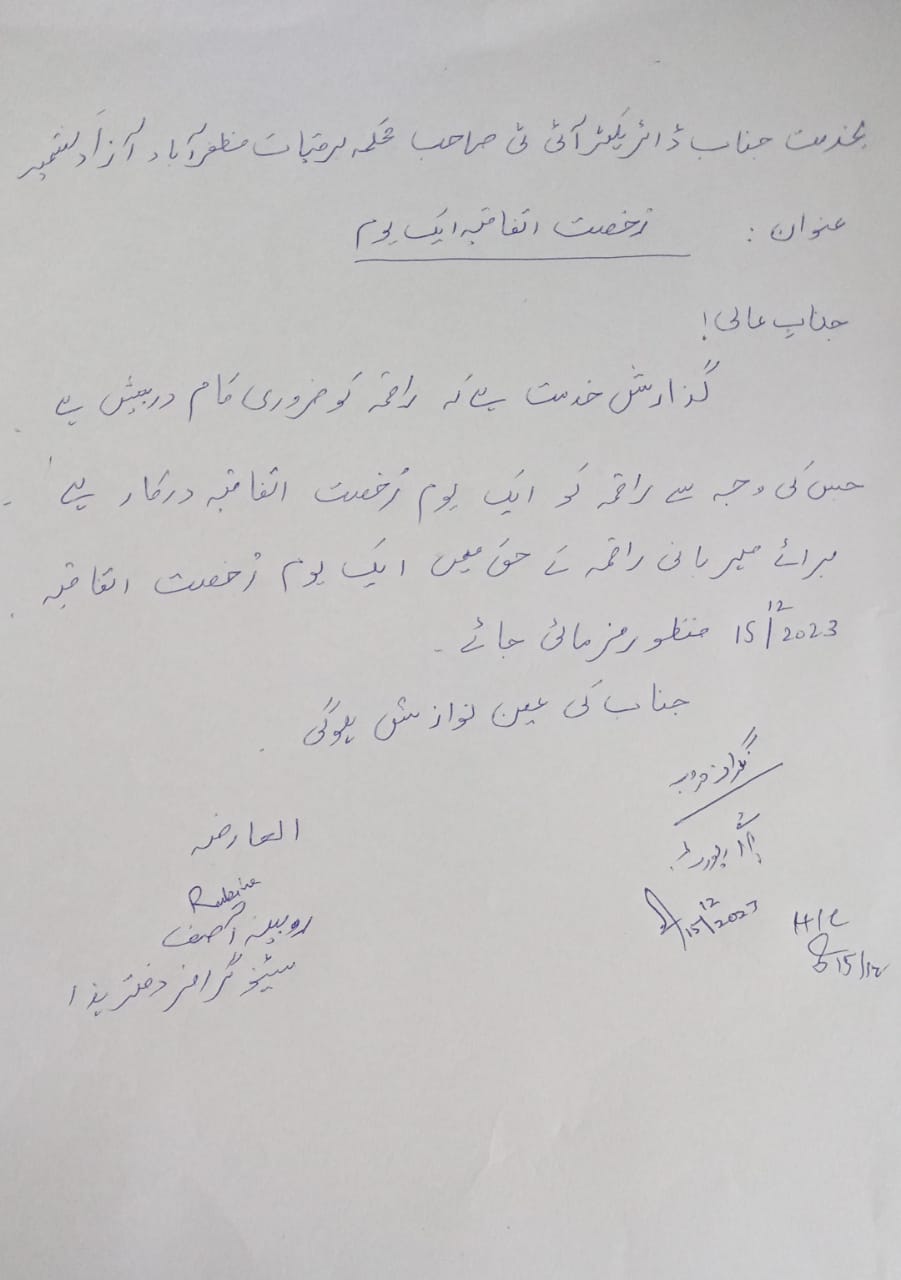 بخدمت جناب ڈائریکٹر آئی ٹی صاحب محکمہ برقیات مظفرآباد آزاد کشمیر
عنوان : رُخصت اتفاقیہ ایک یوم
جنابِ عالی!
گذارش خدمت ہے کہ راقمہ کو ضروری کام درپیش ہے
جس کی وجہ سے راقمہ کو ایک یوم رُخصت اتفاقیہ درکار ہے -
برائے مہربانی راقمہ کے حق میں ایک یوم رُخصت اتفاقیہ
15/12/2023 منظور فرمائی جائے -
جناب کی عین نوازش ہوگی
العارضہ
Rubina
روبینہ آصف
سٹینوگرافر دفتر ہذا
رپورٹ
15/12/2023
H/C
15/12